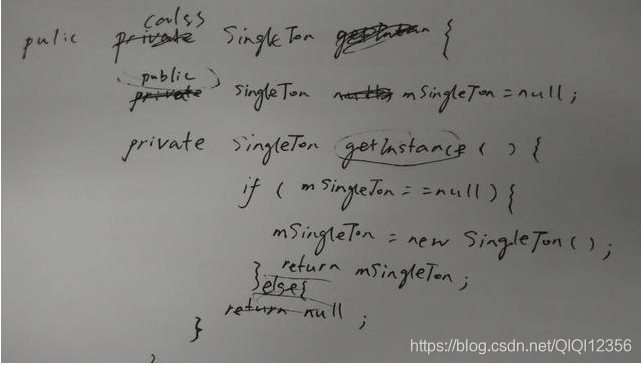 calss
pulic private SingleTon getInstan {
public
private SingleTon mSingleTon = null;
private SingleTon getInstance ( ) {
if ( mSingleTon == null ) {
mSingleTon = new SingleTon ( ) ;
} return mSingleTon ;
} else {
return null ;
}
https://blog.csdn.net/QIQI12356